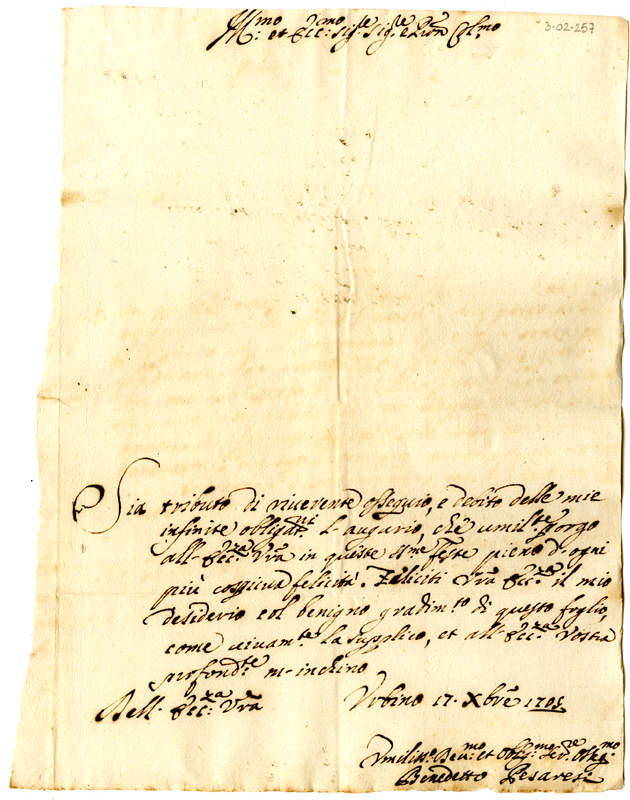 Ill.mo et Ecc.mo Sig.re Sig.re e Pron Col.mo
3-02-257
Sia tributo di riverente ossequio, e debito delle mie
infinite obligat.ni L'augurio, che umilte porgo
all'Ecc.za Vrã in queste SS.me Feste pieno d'ogni
più cospicua felicità. Feliciti Vrã Ecc.za il mio
desiderio col benigno gradim.to di questo foglio,
come vivam.te la supplico, et all'Ecc.za Vostra
profond.te m'inchino
Dell'Ecc.za Vrã Urbino 17. Xbre
Umiliss.o Dev.mo et Obl.mo Ser.re
Benedetto Pesaresi